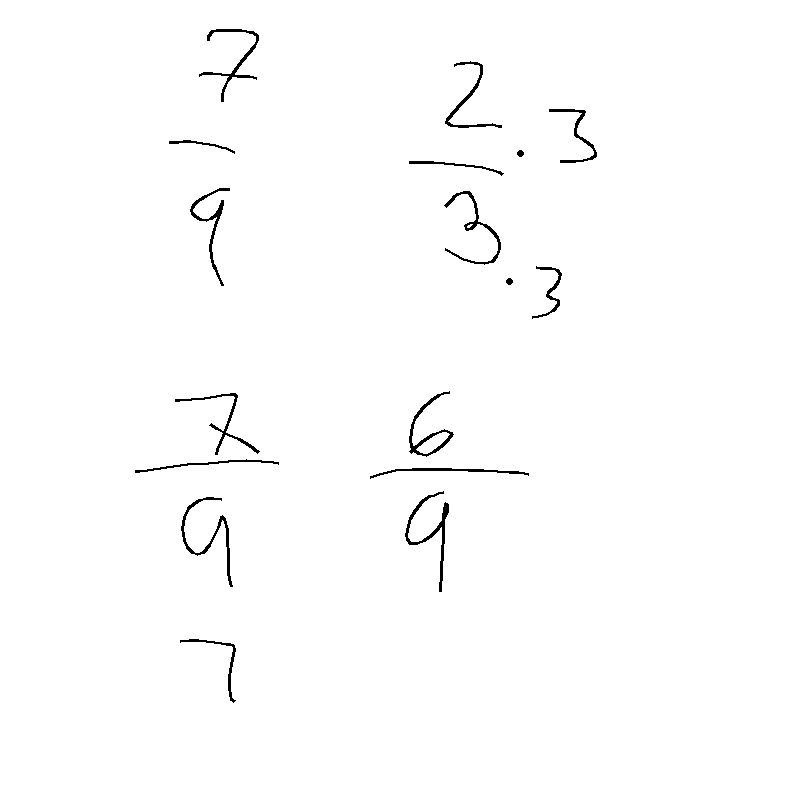 7/9 2·3/3·3
7/9 6/9
7